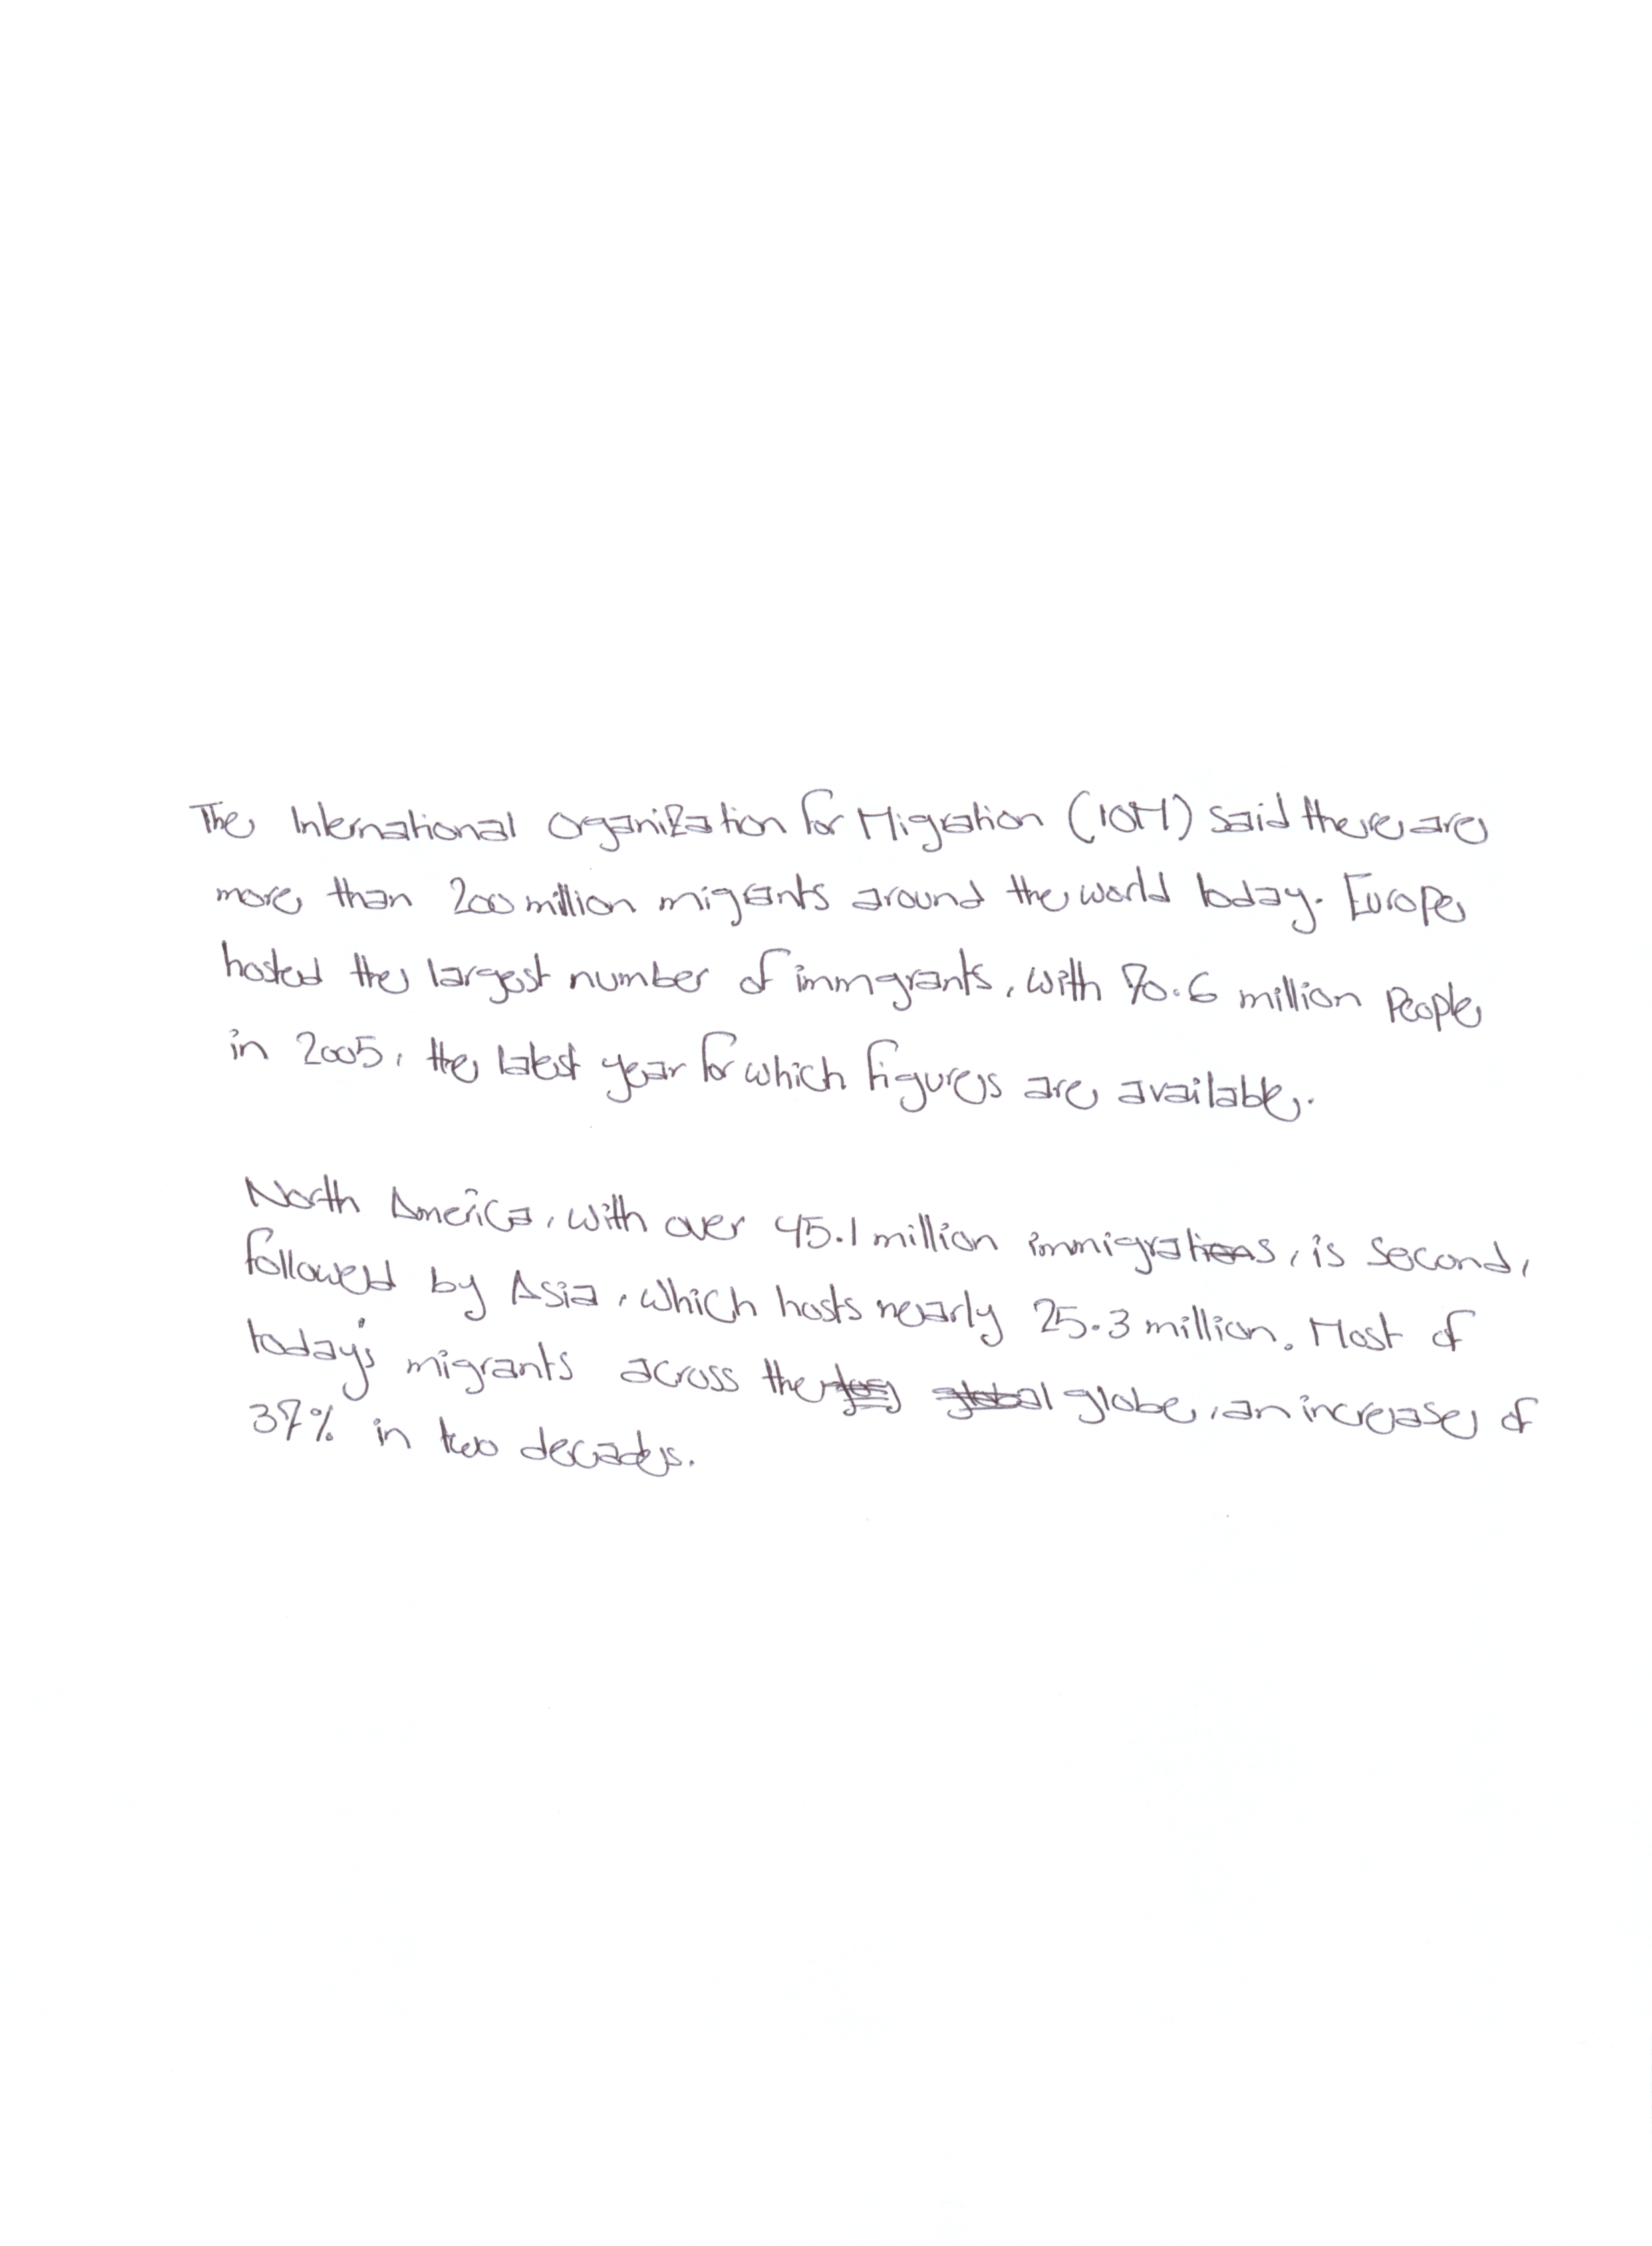 The International Organization for Migration (IOM) said there are
more than 200 million migrants around the world today. Europe
hosted the largest number of immgrants, with 70.6 million People
in 2005, the latest year for which figures are available.
North America, with over 45.1 million immigrations, is second,
followed by Asia, which hosts nearly 25.3 million. Most of
today's migrants across the globe, an increase of
37% in two decades.